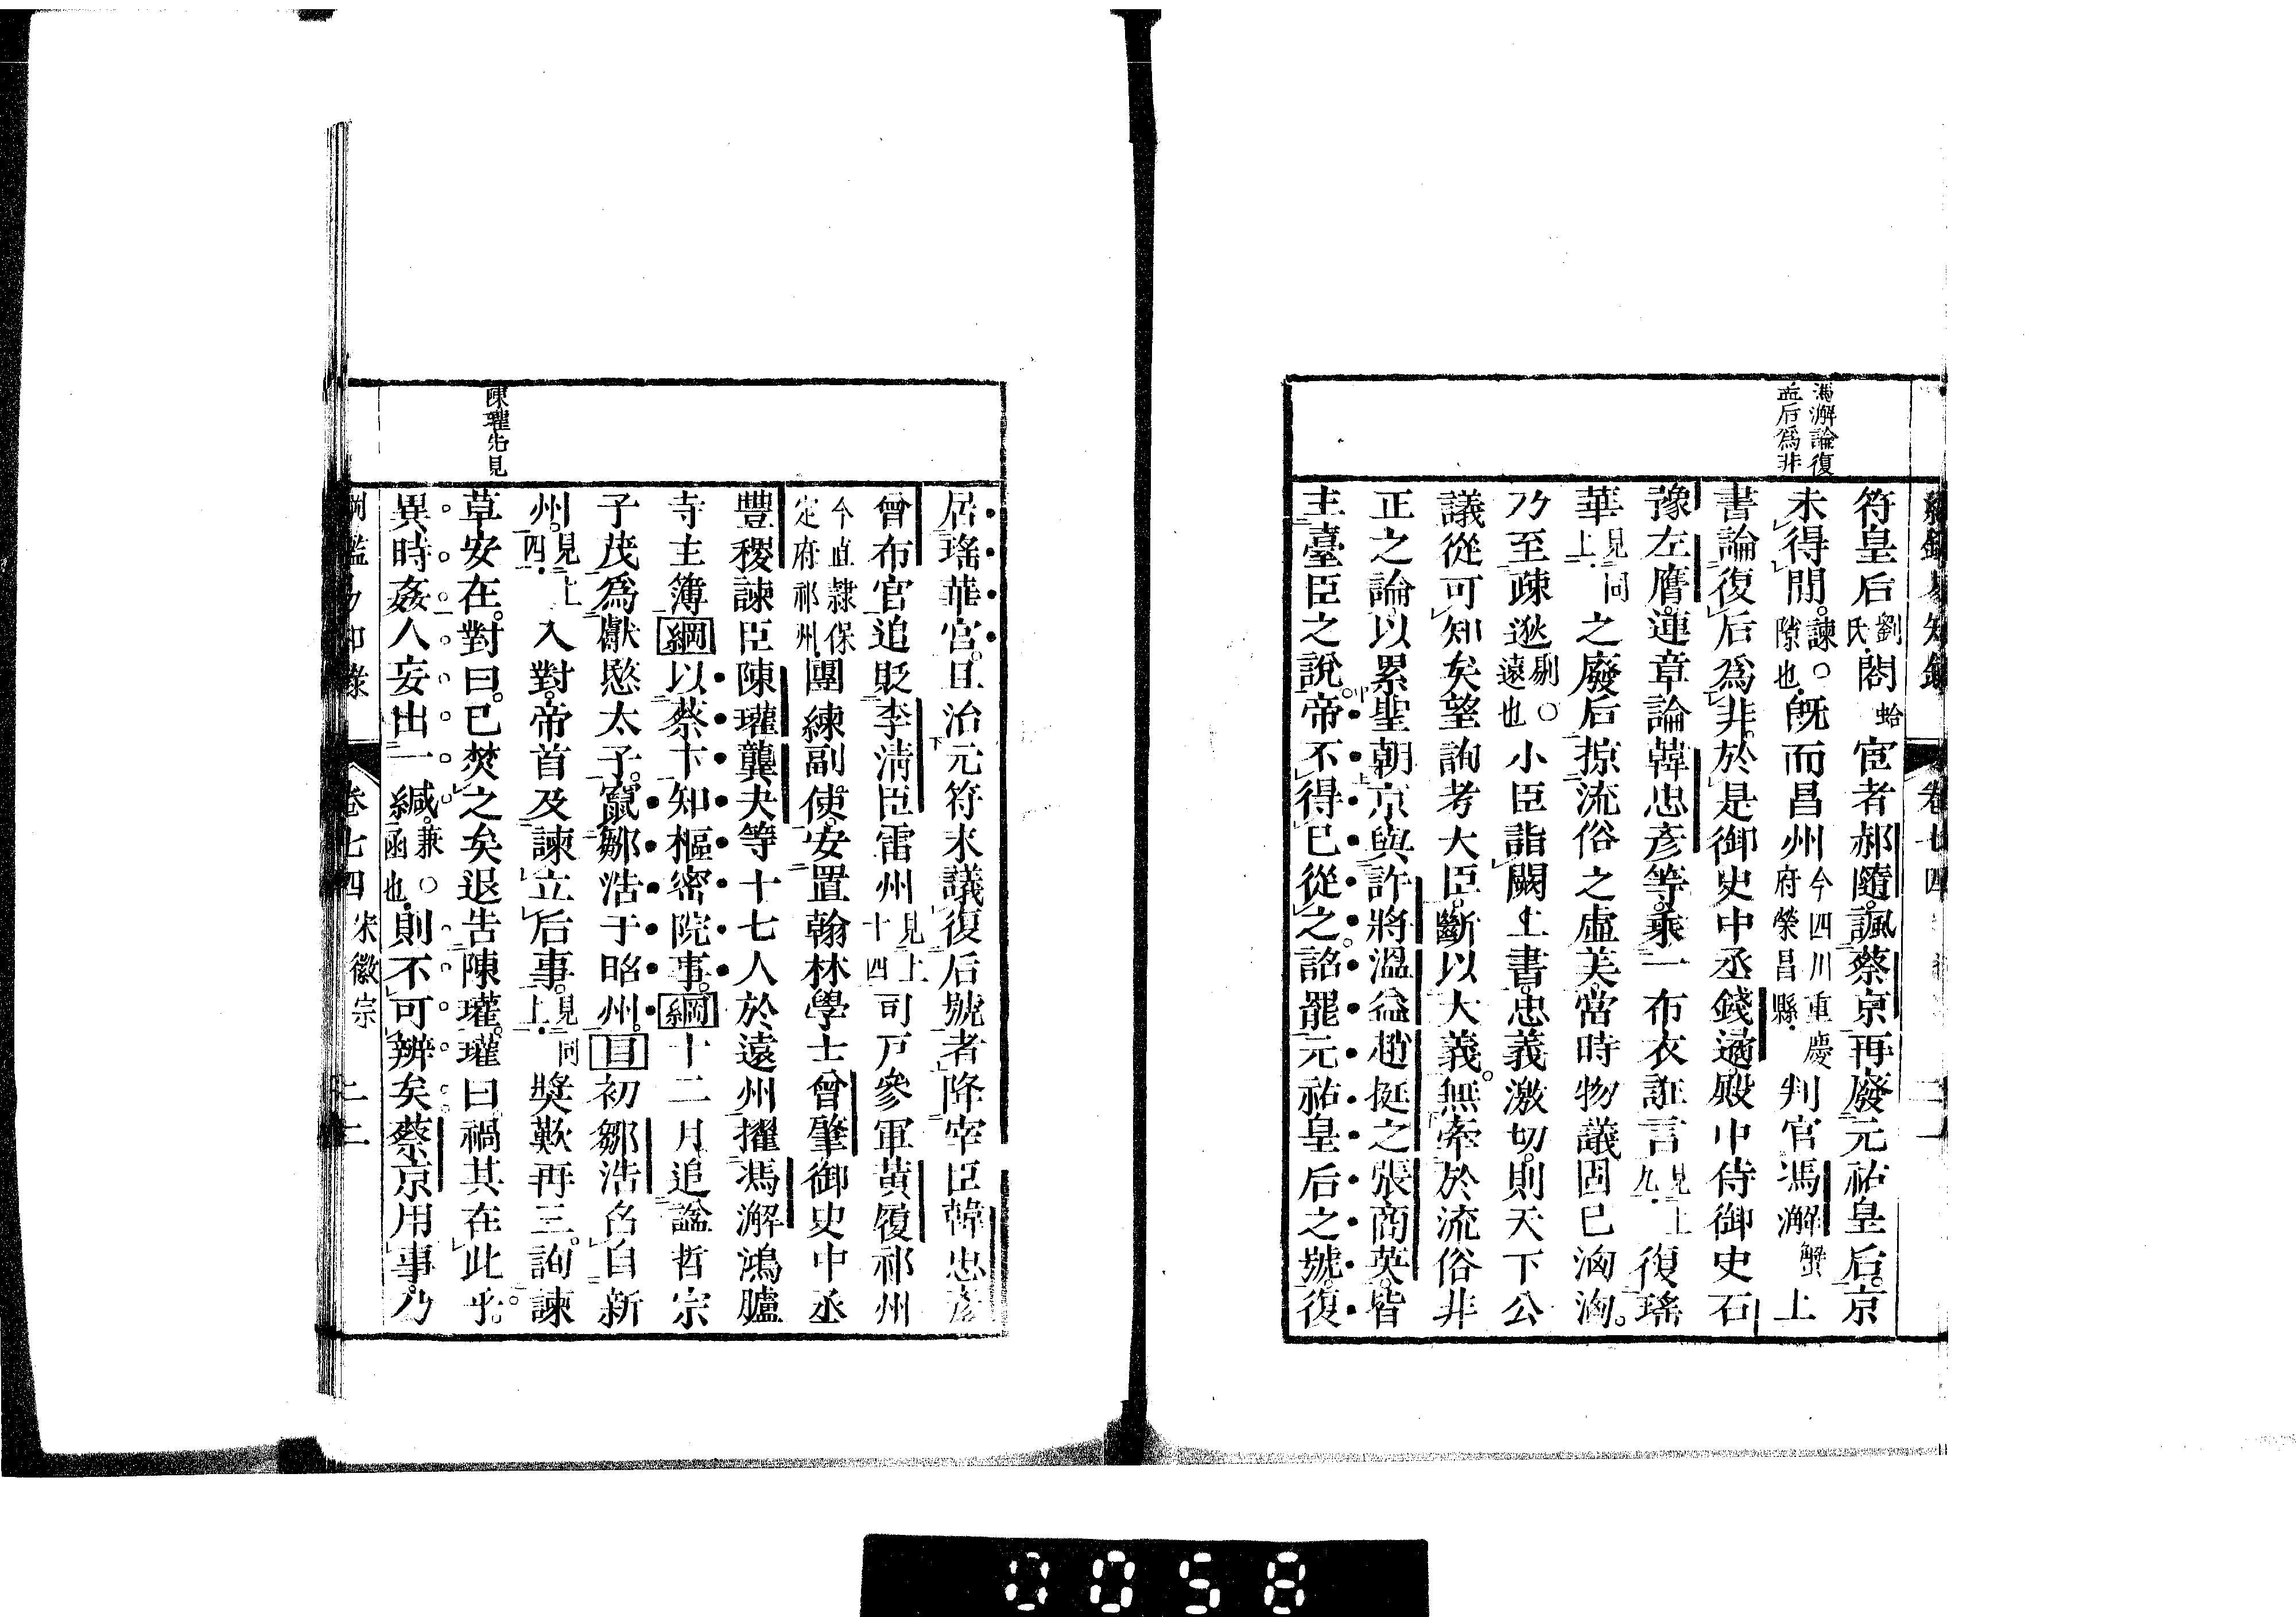 馮澥論復
孟后爲非
符皇后劉氏.閤蛤宦者郝隨。諷蔡京再廢元祐皇后。京
未得閒。諫○隙也.旣而昌州今四川重慶府榮昌縣.判官馮澥蟹上
書論復后爲非。於是御史中丞錢遹殿中侍御史石
豫左膺。連章論韓忠彥等。乘一布衣誑言見上九.復瑤
華見同上.之廢后。掠流俗之虛美。當時物議固已洶洶。
乃至疎逖剔○遠也小臣詣闕上書。忠義激切。則天下公
議從可知矣。望詢考大臣。斷以大義。無牽於流俗非
正之論。以累聖朝。京與許將溫益趙挺之張商英。皆
主臺臣之說。帝不得已從之。詔罷元祐皇后之號。復
居瑤華宮。且治元符末議復后號者。降宰臣韓忠彥
曾布官。追貶李清臣雷州見上十四司戶參軍。黃履祁州
今直隸保定府祁州.團練副使。安置翰林學士曾肇御史中丞
豐稷諫臣陳瓘龔夬等十七人於遠州。擢馮澥鴻臚
寺主簿。綱以蔡卞知樞密院事。綱十二月追諡哲宗
子茂爲獻愍太子。竄鄒浩于昭州。目初鄒浩召自新
州。見上四.入對。帝首及諫立后事。見同上.獎歎再三。詢諫
草安在。對曰。已焚之矣。退告陳瓘。瓘曰。禍其在此乎。
異時姦人妄出一緘。兼○函也.則不可辨矣。蔡京用事。乃
陳瓘先見
卷七四 宋徽宗 二二
0058